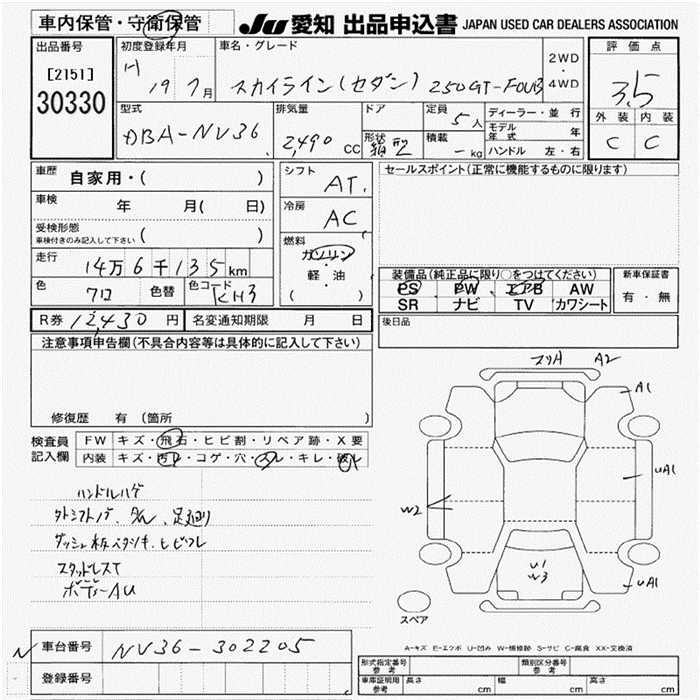 車内保管・守衛保管
JU 愛知 出品申込書 JAPAN USED CAR DEALERS ASSOCIATION
出品番号
[2151]
30330
初度登録年月
H 19 7月
車名・グレード
スカイライン(セダン) 250GT-FOUR
2WD
・
4WD
評価点
3.5
外装 内装
C C
型式
DBA-NV36
排気量
2,490 CC
ドア
形状
箱型
定員
5人
積載
- kg
ディーラー・並行
モデル年式 年
ハンドル 左・右
車歴
自家用・( )
車検 年 月( 日)
受検形態
車検付きのみ記入して下さい ( )
走行
14万6千135km
色 色替 色コード
KH3
シフト
AT.
冷房
AC
燃料
ガソリン
・
軽・油
( )
セールスポイント(正常に機能するものに限ります)
装備品(純正品に限り○をつけてください)
PS PW エアB AW
SR ナビ TV カワシート
新車保証書
有・無
R券 12,430円 名変通知期限 月 日
後日品
注意事項申告欄(不具合内容等は具体的に記入して下さい)
修復歴 有 (箇所 )
検査員
記入欄
FW キズ・飛石・ヒビ割・リペア跡・X要
内装 キズ・汚レ・コゲ・穴・スレ・キレ・破レ
ハンドルハゲ
スタッドレスT
ボデーAU
スリA A2
A1
UA1
W2
U1
W3
UA1
スペア
A-キズ E-エクボ U-凹み W-補修跡 S-サビ C-腐食 XX-交換済
N 車台番号 NV36-302205
登録番号
型式指定番号
参考
類別区分番号
参考
車庫証明用
参考
長さ cm 幅 cm 高さ cm